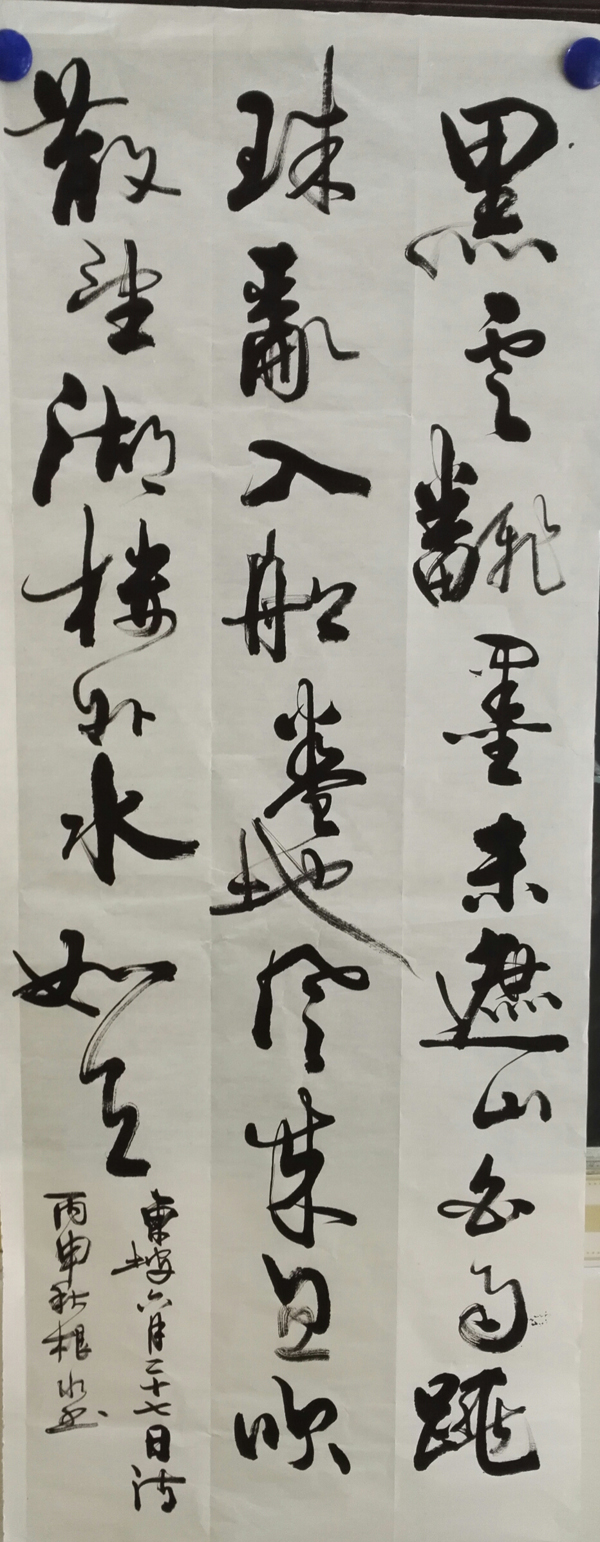 黑雲飜墨未遮山白雨跳
珠亂入船卷地風來忽吹
散望湖樓外水如天
東坡六月二十七日詩
丙申秋根水書